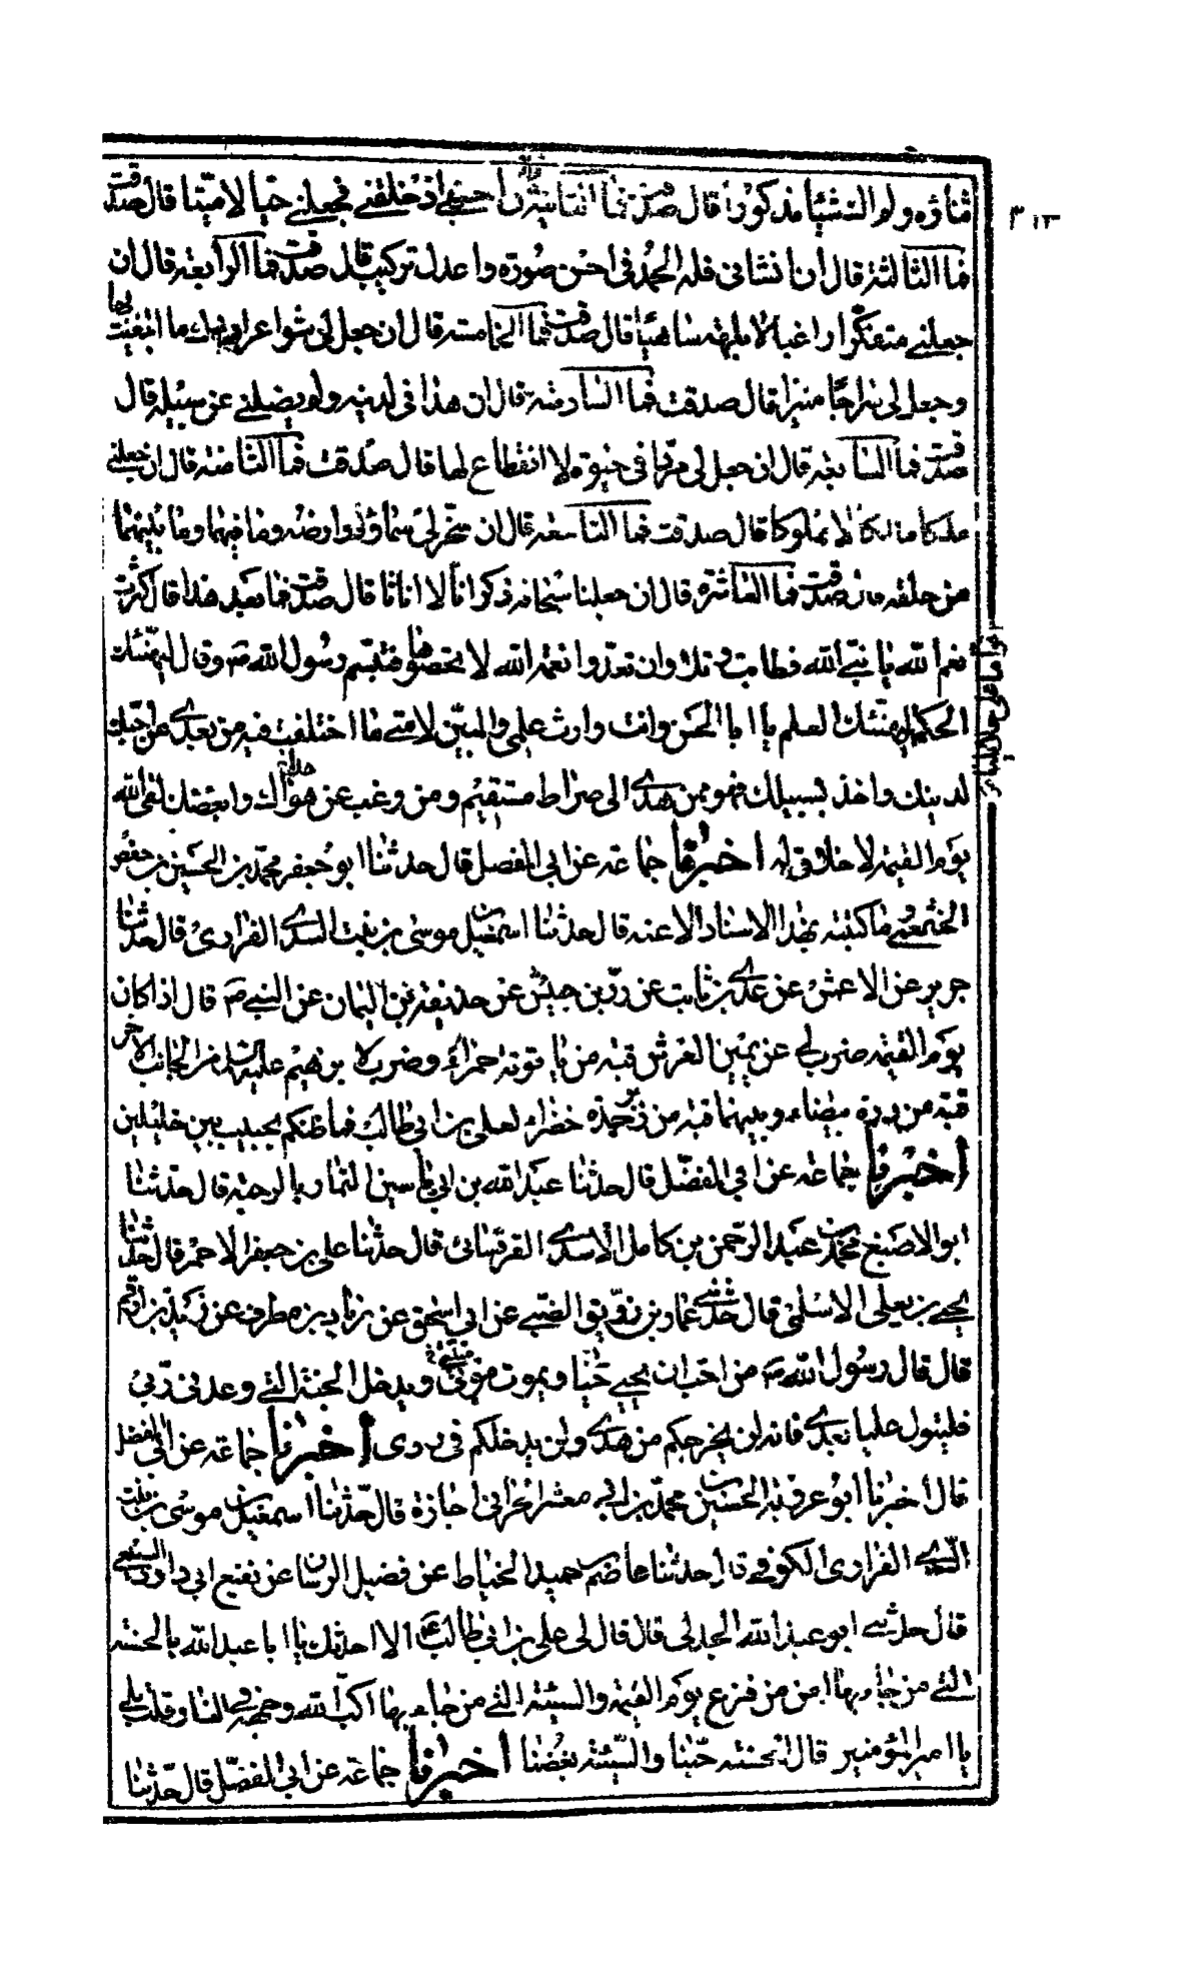 ٣١٣
ثناؤه ولم الك شيئا مذكورا قال صدقت فما الثانية قال ان احسن بى اذ خلقنى فجعلنى حيا لا ميتا قال صدقت
فما الثالثة قال ان انشانى فله الحمد فى احسن صورة واعدل تركيب قال صدقت فما الرابعة قال ان
جعلنى متفكرا واعيا لا بلها ساهيا قال صدقت فما الخامسة قال ان جعل لى شواعر ادرك ما ابتغيت بها
وجعل لى سراجا منيرا قال صدقت فما السادسة قال ان هدانى لدينه ولم يضلنى عن سبيله قال
صدقت فما السابعة قال ان جعل لى مردا فى حيوة لا انقطاع لها قال صدقت فما الثامنة قال ان جعلنى
ملكا مالكا لا مملوكا قال صدقت فما التاسعة قال ان سخر لى سماؤه وارضه وما فيهما وما بينهما
من خلقه قال صدقت فما العاشرة قال ان جعلنا سبحانه ذكرانا لا اناثا قال صدقت فما بعد هذا قال كثرت
نعم الله يا نبى الله فطابت وتلا وان تعدوا نعمة الله لا تحصوها فتبسم رسول الله ص وقال ليهنئك
الحكمة ليهنئك العلم يا ابا الحسن وانت وارث علمى والمبين لامتى ما اختلفت فيه من بعدى من احبك
لدينك واخذ بسبيلك فهو ممن هدى الى صراط مستقيم ومن رغب عن هواك وابغضك لقى الله
يوم القيمة لا خلاق له اخبرنا جماعة عن ابى المفضل قال حدثنا ابو جعفر محمد بن الحسين بن حفص
الخثعمى ما كتبته بهذا الاسناد الا عنه قال حدثنا اسمعيل بن موسى بن بنت السدى الفزارى قال حدثنا
جرير عن الاعمش عن عدى بن ثابت عن زر بن حبيش عن حذيفة بن اليمان عن النبى ص قال اذا كان
يوم القيمة ضرب لى عن يمين العرش قبة من ياقوتة حمراء وضرب لابرهيم عليه السلام من الجانب الاخر
قبة من درة بيضاء وبينهما قبة من زبرجدة خضراء لعلى بن ابى طالب فما ظنكم بحبيب بين خليلين
اخبرنا جماعة عن ابى المفضل قال حدثنا عبد الله بن ابى ياسين التمار بالرحبة قال حدثنا
ابو الاصبغ محمد بن عبد الرحمن بن كامل الاسدى القرقسانى قال حدثنا على بن جعفر الاحمر قال حدثنا
يحيى بن يعلى الاسلمى قال حدثنى عمار بن زريق الضبى عن ابى اسحق عن زياد بن مطرف عن زيد بن ارقم
قال قال رسول الله ص من احب ان يحيى حياتى ويموت موتى ويدخل الجنة التى وعدنى ربى
فليتول عليا بعدى فانه لن يخرجكم من هدى ولن يدخلكم فى ردى اخبرنا جماعة عن ابى المفضل
قال اخبرنا ابو عروبة الحسين بن محمد بن ابى معشر الحرانى اجازة قال حدثنا اسمعيل بن موسى بن بنت
السدى الفزارى الكوفى قال حدثنا عاصم بن حميد الخياط عن فضيل الرسان عن نفيع ابى داود السبيعى
قال حدثنى ابو عبد الله الجدلى قال قال لى على بن ابى طالب ع الا احدثك يا ابا عبد الله بالحسنة
التى من جاء بها امن من فزع يوم القيمة والسيئة التى من جاء بها اكب الله وجهه فى النار قلت بلى
يا امير المؤمنين قال الحسنة حبنا والسيئة بغضنا اخبرنا جماعة عن ابى المفضل قال حدثنا